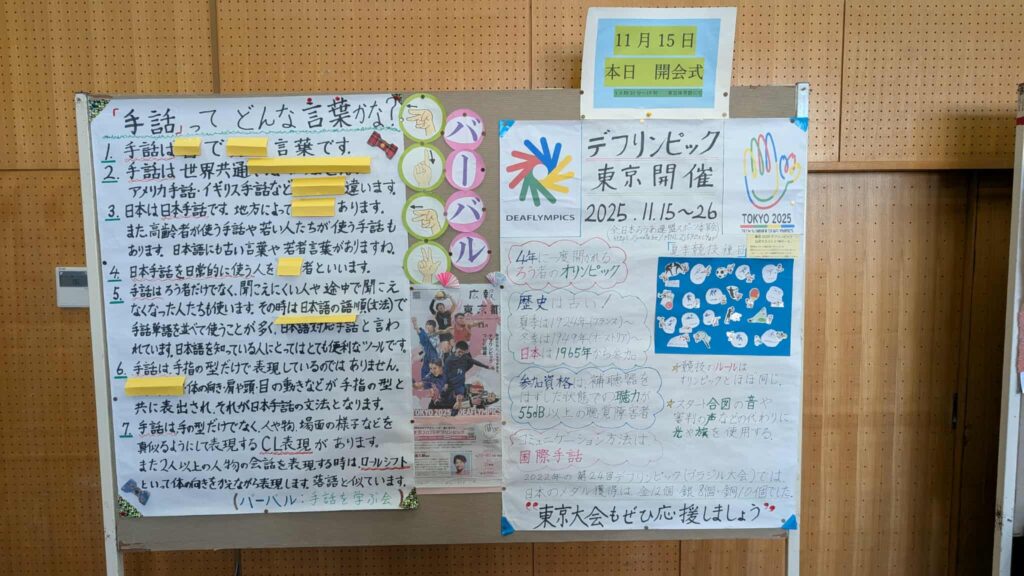 「手話」って どんな言葉かな?
1. 手話は で 言葉です.
2. 手話は 世界共通
アメリカ手話・イギリス手話など 違います
3. 日本は日本手話です. 地方によって あります.
また、高齢者が使う手話や若い人たちが使う手話も
あります. 日本語にも古い言葉や若者言葉がありますね.
4. 日本手話を日常的に使う人を 者といいます.
5. 手話はろう者だけでなく、聞こえにくい人や途中で聞こえ
なくなった人たちも使います. その時は日本語の語順(文法)で
手話単語を並べて使うことが多く日本語対応手話と言わ
れています. 日本語を知っている人にとってはとても便利なツールです.
6. 手話は、手指の型だけで表現しているのではありません.
体の向き・肩や頭・目の動きなどが手指の型と
共に表出され、それが日本手話の文法となります.
7. 手話は手の型だけでなく、人や物、場面の様子などを
真似るようにして表現するCL表現があります.
また2人以上の人物の会話を表現する時はロールシフト
といって体の向きをかえながら表現します. 落語と似ています.
(バーバル:手話を学ぶ会)
バーバル
広報
東京都
TOKYO 2025 DEAFLYMPICS
11月15日
本日 開会式
DEAFLYMPICS
デフリンピック
東京開催
2025.11.15～26
TOKYO 2025
4年に一度開かれる
ろう者のオリンピック
歴史は古い!
夏季は1924年(フランス)～
冬季は1949年(オーストリア)～
日本は1965年から参加
参加資格は、補聴器を
はずした状態での聴力が
55dB以上の聴覚障害者
コミュニケーション方法は
国際手話
☆競技のルールは
オリンピックとほぼ同じ.
☆スタート合図の音や
審判の声などの代わりに
光や旗を使用する.
2022年の第24回デフリンピック(ブラジル大会)では
日本のメダル獲得は 金12個・銀8個・銅10個でした.
"東京大会もぜひ応援しましょう"